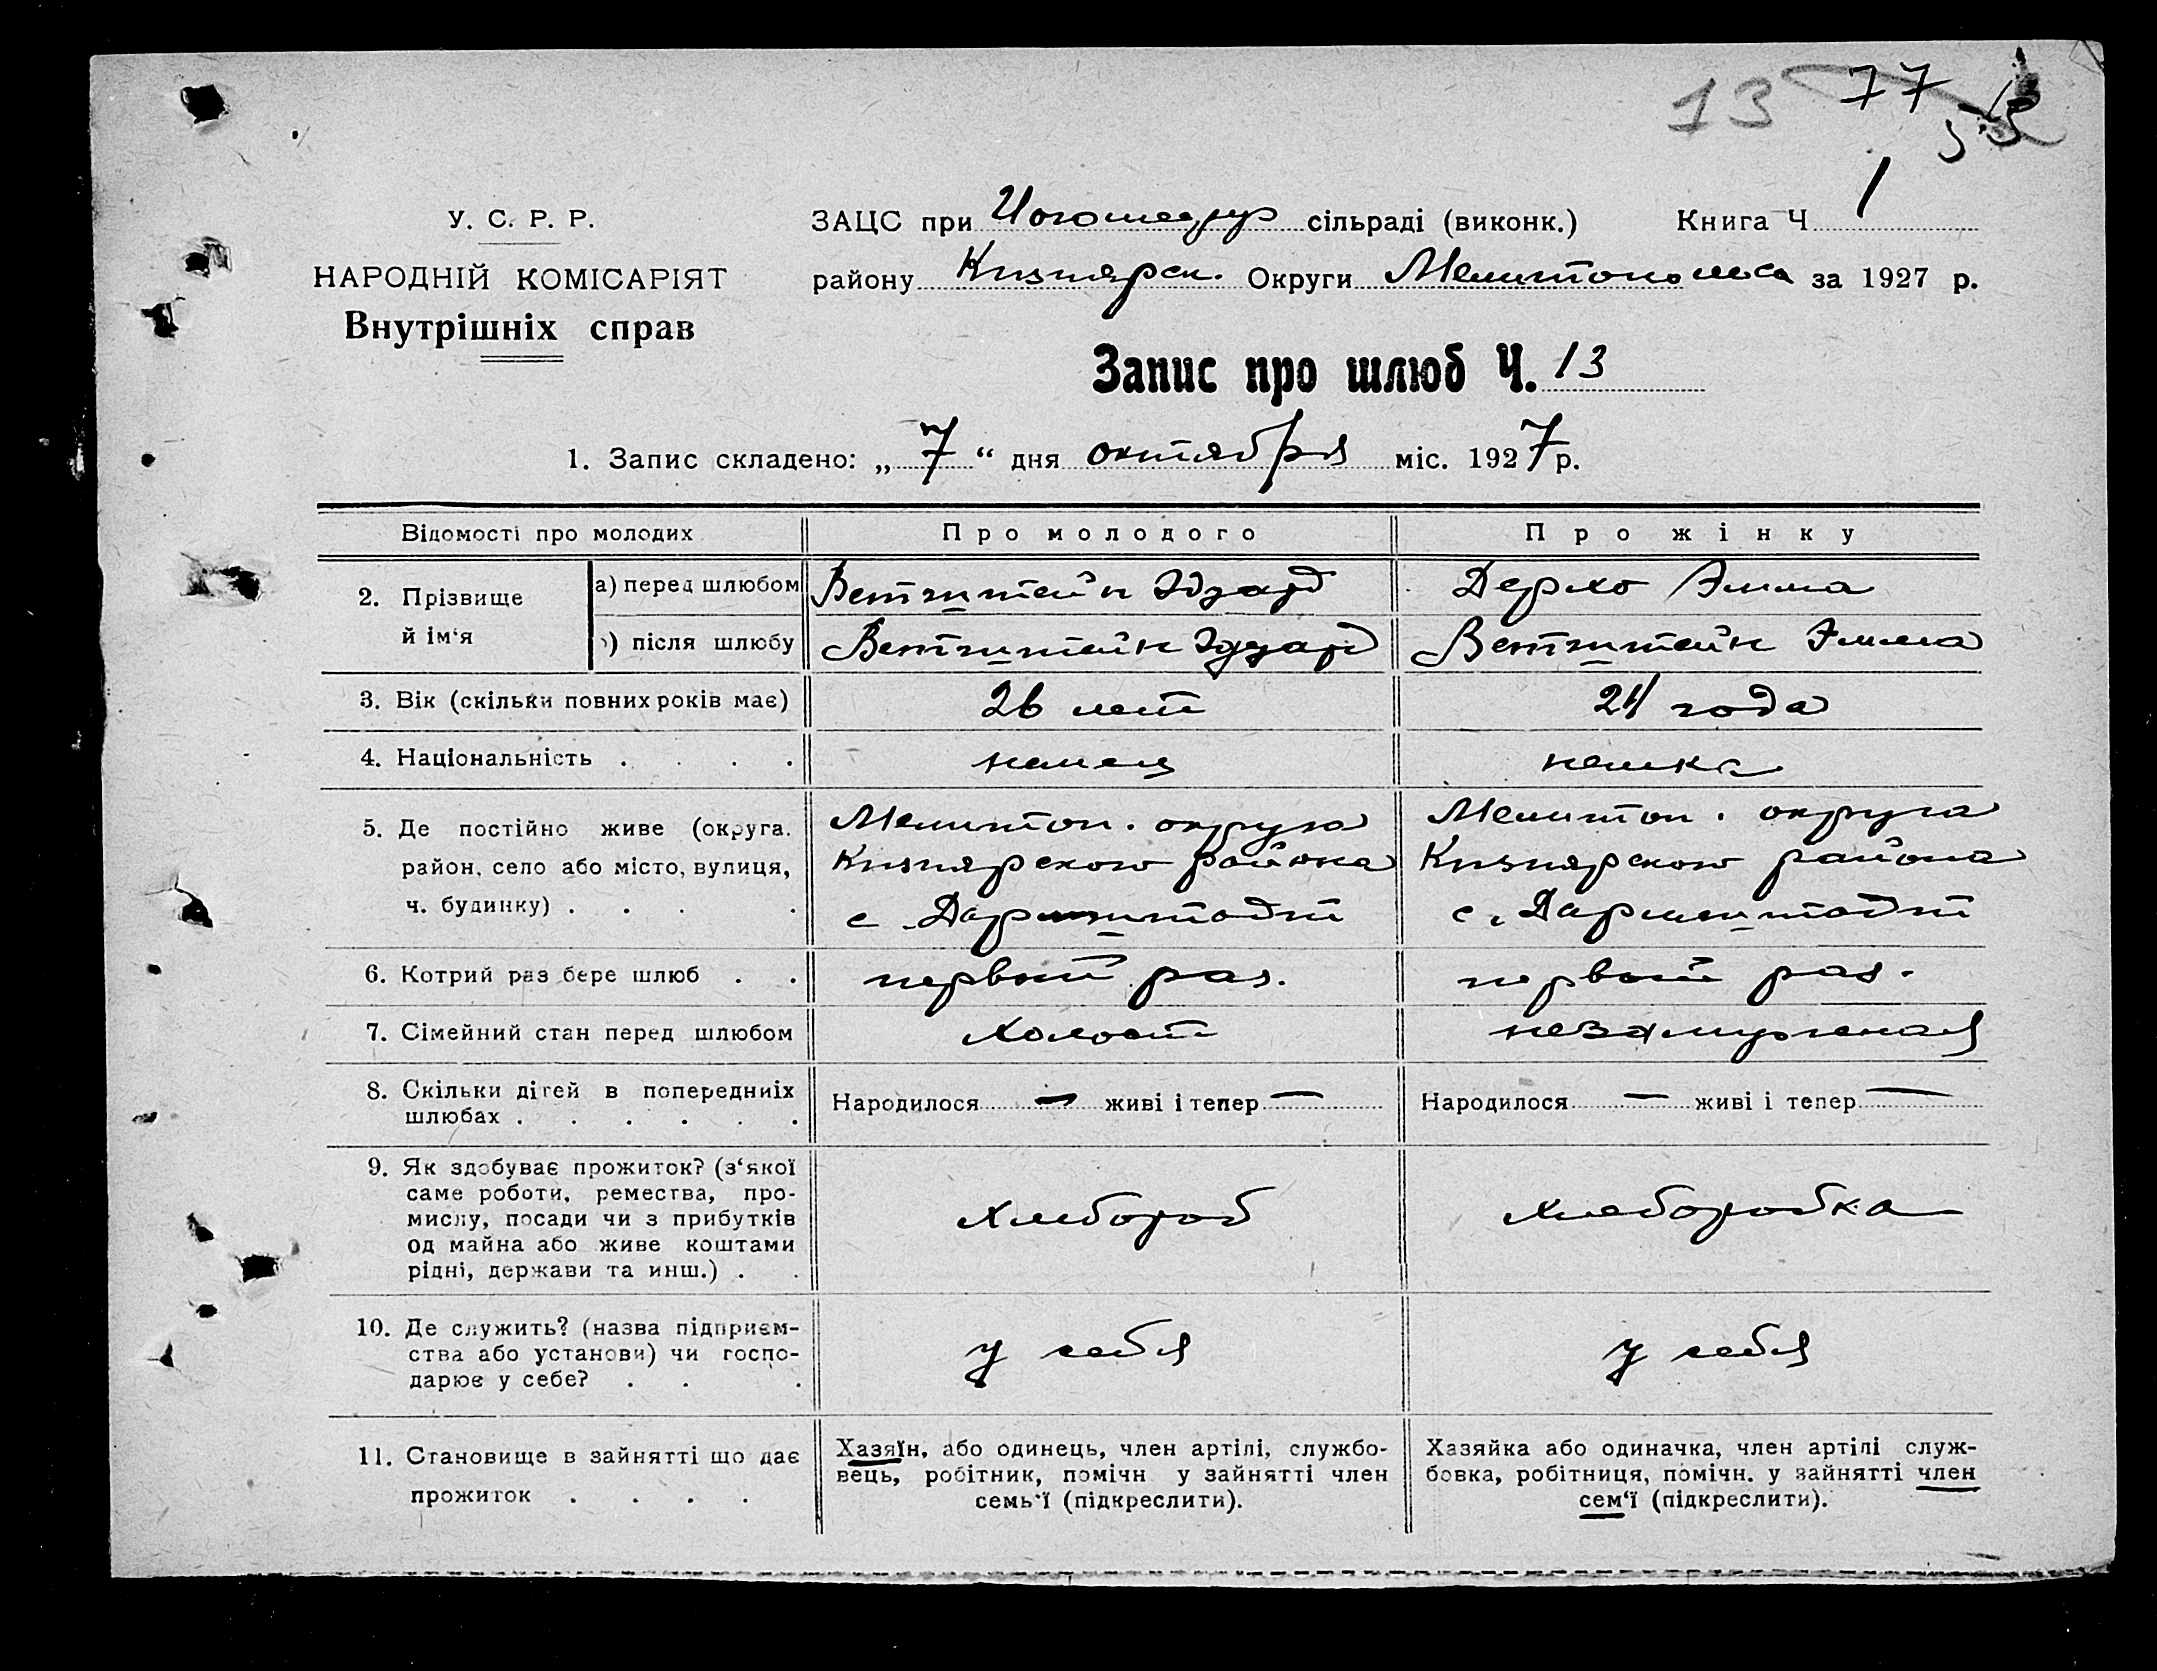 13 77
У. С. Р. Р.
ЗАЦС при сільраді (виконк.) Книга Ч 1
НАРОДНІЙ КОМІСАРІЯТ
району Кизиярск. Округи за 1927 р.
Внутрішніх справ
Запис про шлюб Ч. 13
1. Запис складено: „ 7 “ дня октября міс. 1927 р.
Відомості про молодих Про молодого Про жінку
2. Прізвище й ім‘я
а) перед шлюбом Ветштейн Эдуард Эмма
б) після шлюбу Ветштейн Эдуард Ветштейн Эмма
3. Вік (скільки повних років має) 26 лет 24 года
4. Національність . . . . немец немка
5. Де постійно живе (округа. Мелитоп. округа Мелитоп. округа
район, село або місто, вулиця, Кизиярского района Кизиярского района
ч. будинку) . . . . с. Дармштадт с. Дармштадт
6. Котрий раз бере шлюб . . первый раз. первый раз.
7. Сімейний стан перед шлюбом холост незамужная
8. Скільки дітей в попередниіх Народилося — живі і тепер — Народилося — живі і тепер —
шлюбах . . . . . .
9. Як здобуває прожиток? (з‘якої
саме роботи, ремества, про-
мислу, посади чи з прибутків хлебороб хлеборобка
од майна або живе коштами
рідні, держави та инш.) . .
10. Де служить? (назва підприєм-
ства або установи) чи госпо- у себя у себя
дарює у себе? . . .
11. Становище в зайнятті що дає Хазяїн, або одинець, член артілі, службо- Хазяйка або одиначка, член артілі служ-
прожиток . . . . вець, робітник, помічн у зайнятті член бовка, робітниця, помічн. у зайнятті член
семь‘ї (підкреслити). сем‘ї (підкреслити).